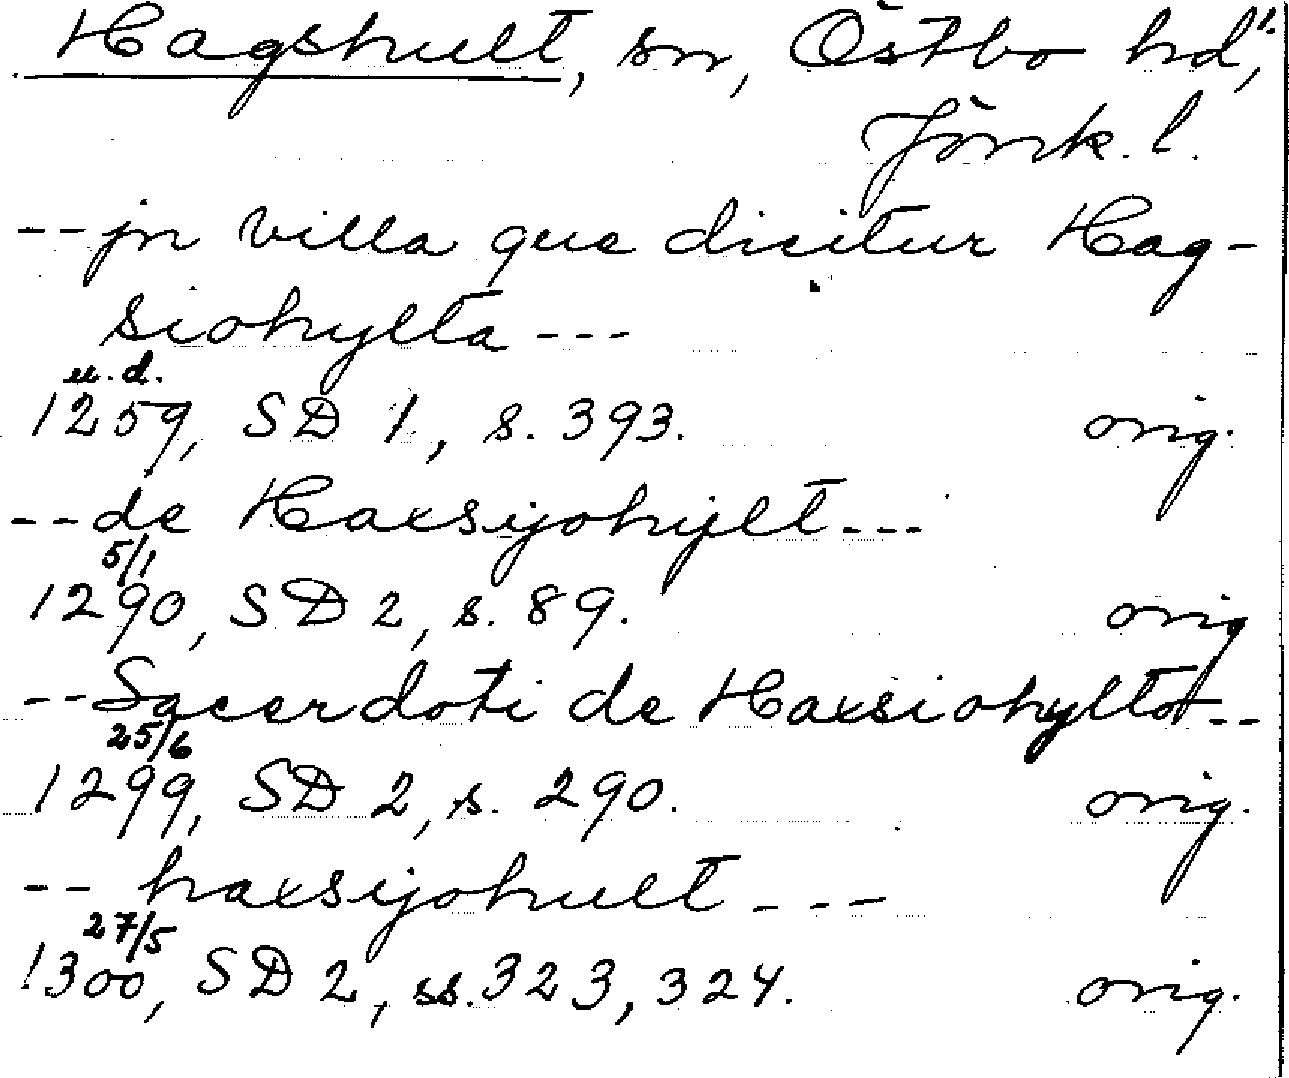 Hagshult, sn, Östbo hd,
Jönk. l.
-- jn villa que dicitur Hag-
siohylta ---
u. d.
1259, SD 1, s. 393. orig.
-- de Haxsijohijlt ---
5/1
1290, SD 2, s. 89. orig
-- Sacerdoti de Haxsiohylta --
25/6
1299, SD 2, s. 290. orig.
-- haxsijohult ---
27/5
1300, SD 2, ss. 323, 324. orig.